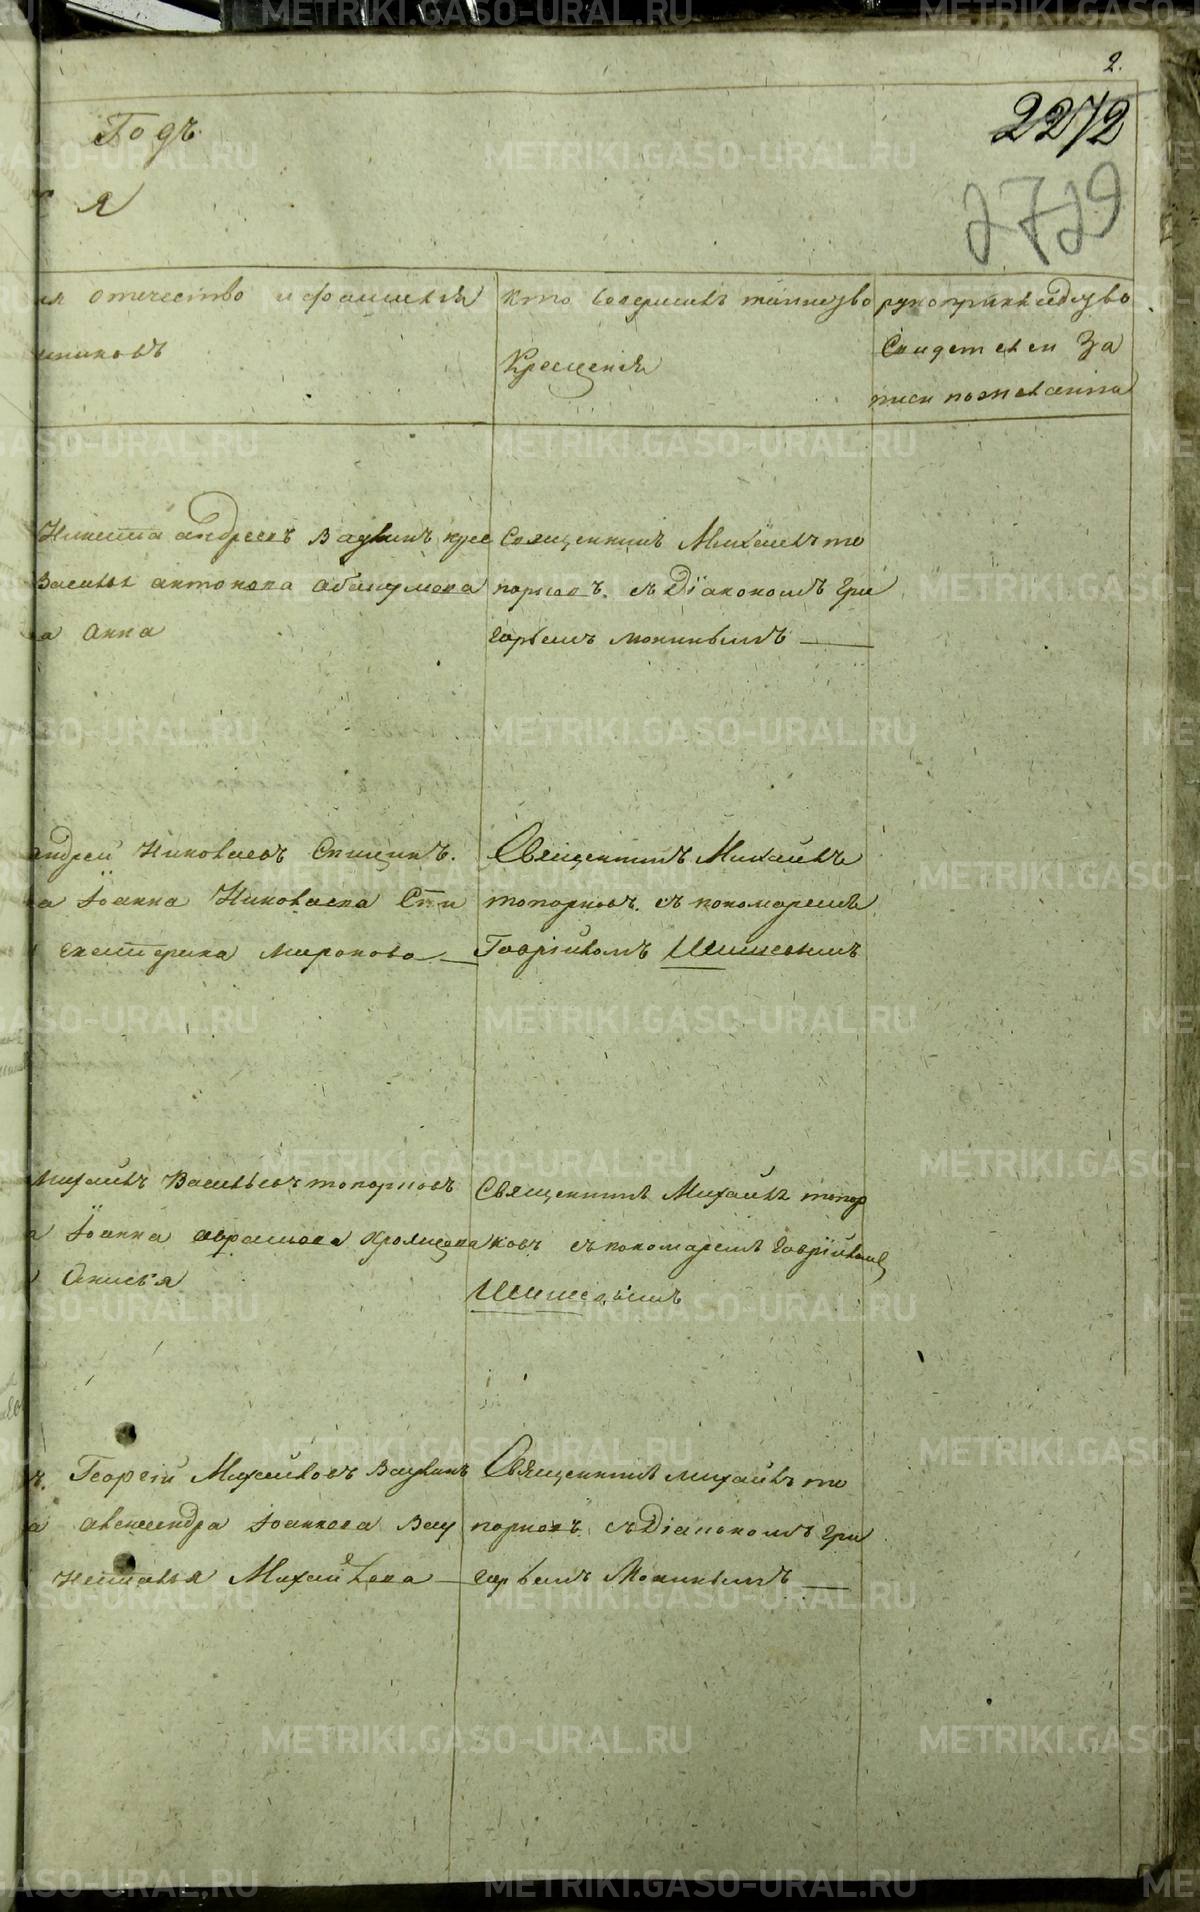 2.
Годъ.
2272
я
2729
отчество и фамилия
никовъ
кто совершилъ таинство
Крещения
рукоприкладство
Свидетелей За
писи по желанию
Никита андреевъ Ваулинъ
антонова
а Анна
Священникъ Михаилъ то
порковъ. съ Дїакономъ Гри
горьемъ мокинымъ
андрей Николаевъ Спицинъ.
а Їоанна Николаева Спи
екатерина миронова
Священникъ Михайлъ
топорковъ. съ пономаремъ
Гавріиломъ Шишовымъ
михайлъ Васильевъ топорковъ
а Їоанна аврамова
Анисья
Священникъ Михайлъ топор
ковъ съ пономаремъ Гавріиломъ
Шишовымъ
ъ. Георгій Михайловъ Ваулинъ
а александра Їоаннова Вау
Наталья Михайлова
Священникъ михайлъ то
порковъ. съ Діакономъ Гри
горьемъ Мокинымъ
METRIKI.GASO-URAL.RU